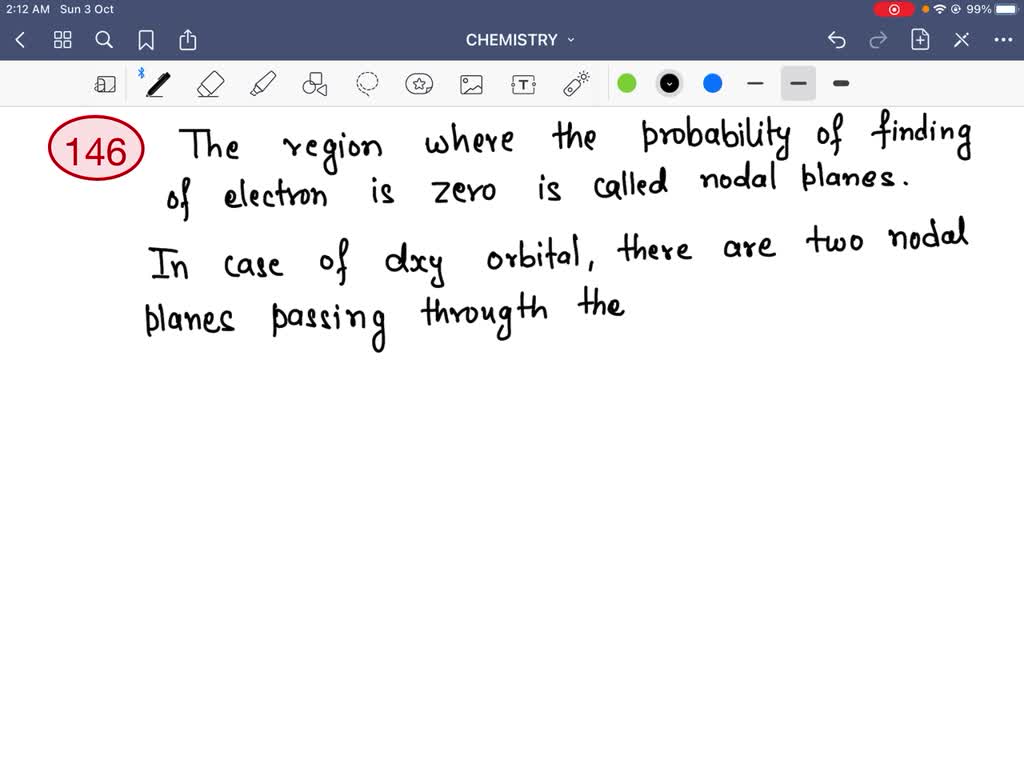 2:12 AM Sun 3 Oct 99%
CHEMISTRY
T
146 The region where the probability of finding
of electron is zero is called nodal planes.
In case of dxy orbital, there are two nodal
planes passing througth the